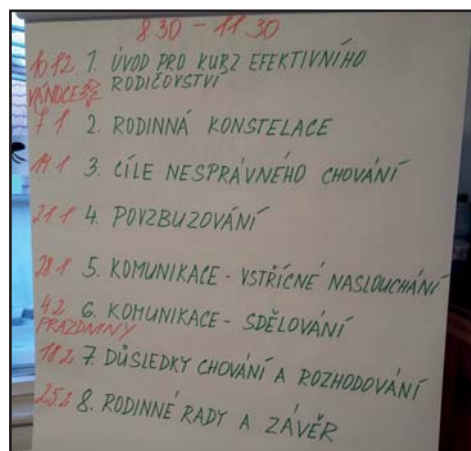 8 30 - 11 30
10 12 1. ÚVOD PRO KURZ EFEKTIVNÍHO
VÁNOCE RODIČOVSTVÍ
7 1 2. RODINNÁ KONSTELACE
14 1 3. CÍLE NESPRÁVNÉHO CHOVÁNÍ
21 1 4. POVZBUZOVÁNÍ
28 1 5. KOMUNIKACE - VSTŘÍCNÉ NASLOUCHÁNÍ
4 2 6. KOMUNIKACE - SDĚLOVÁNÍ
PRÁZDNINY
18 2 7. DŮSLEDKY CHOVÁNÍ A ROZHODOVÁNÍ
25 2 8. RODINNÉ RADY A ZÁVĚR